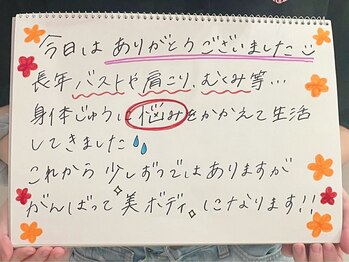 今日は ありがとうございました
長年 バストや肩こり、むくみ等…
身体じゅうに悩みをかかえて生活
してきました
これから 少しずつではありますが
がんばって 美ボディ になります!!